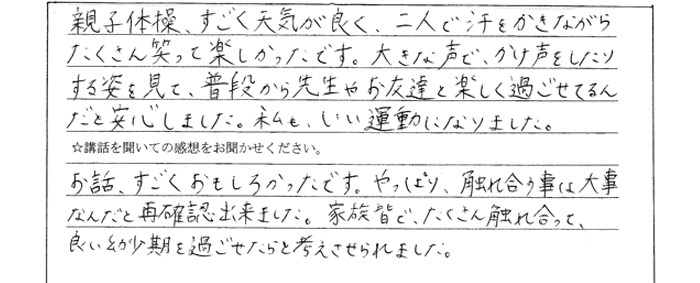 親子体操、すごく天気が良く、二人で汗をかきながら
たくさん笑って楽しかったです。大きな声で、かけ声をしたり
する姿を見て、普段から先生やお友達と楽しく過ごせてるん
だと安心しました。私も、いい運動になりました。
☆講話を聞いての感想をお聞かせください。
お話、すごくおもしろかったです。やっぱり、触れ合う事は大事
なんだと再確認出来ました。家族皆で、たくさん触れ合って、
良い幼少期を過ごせたらと考えさせられました。